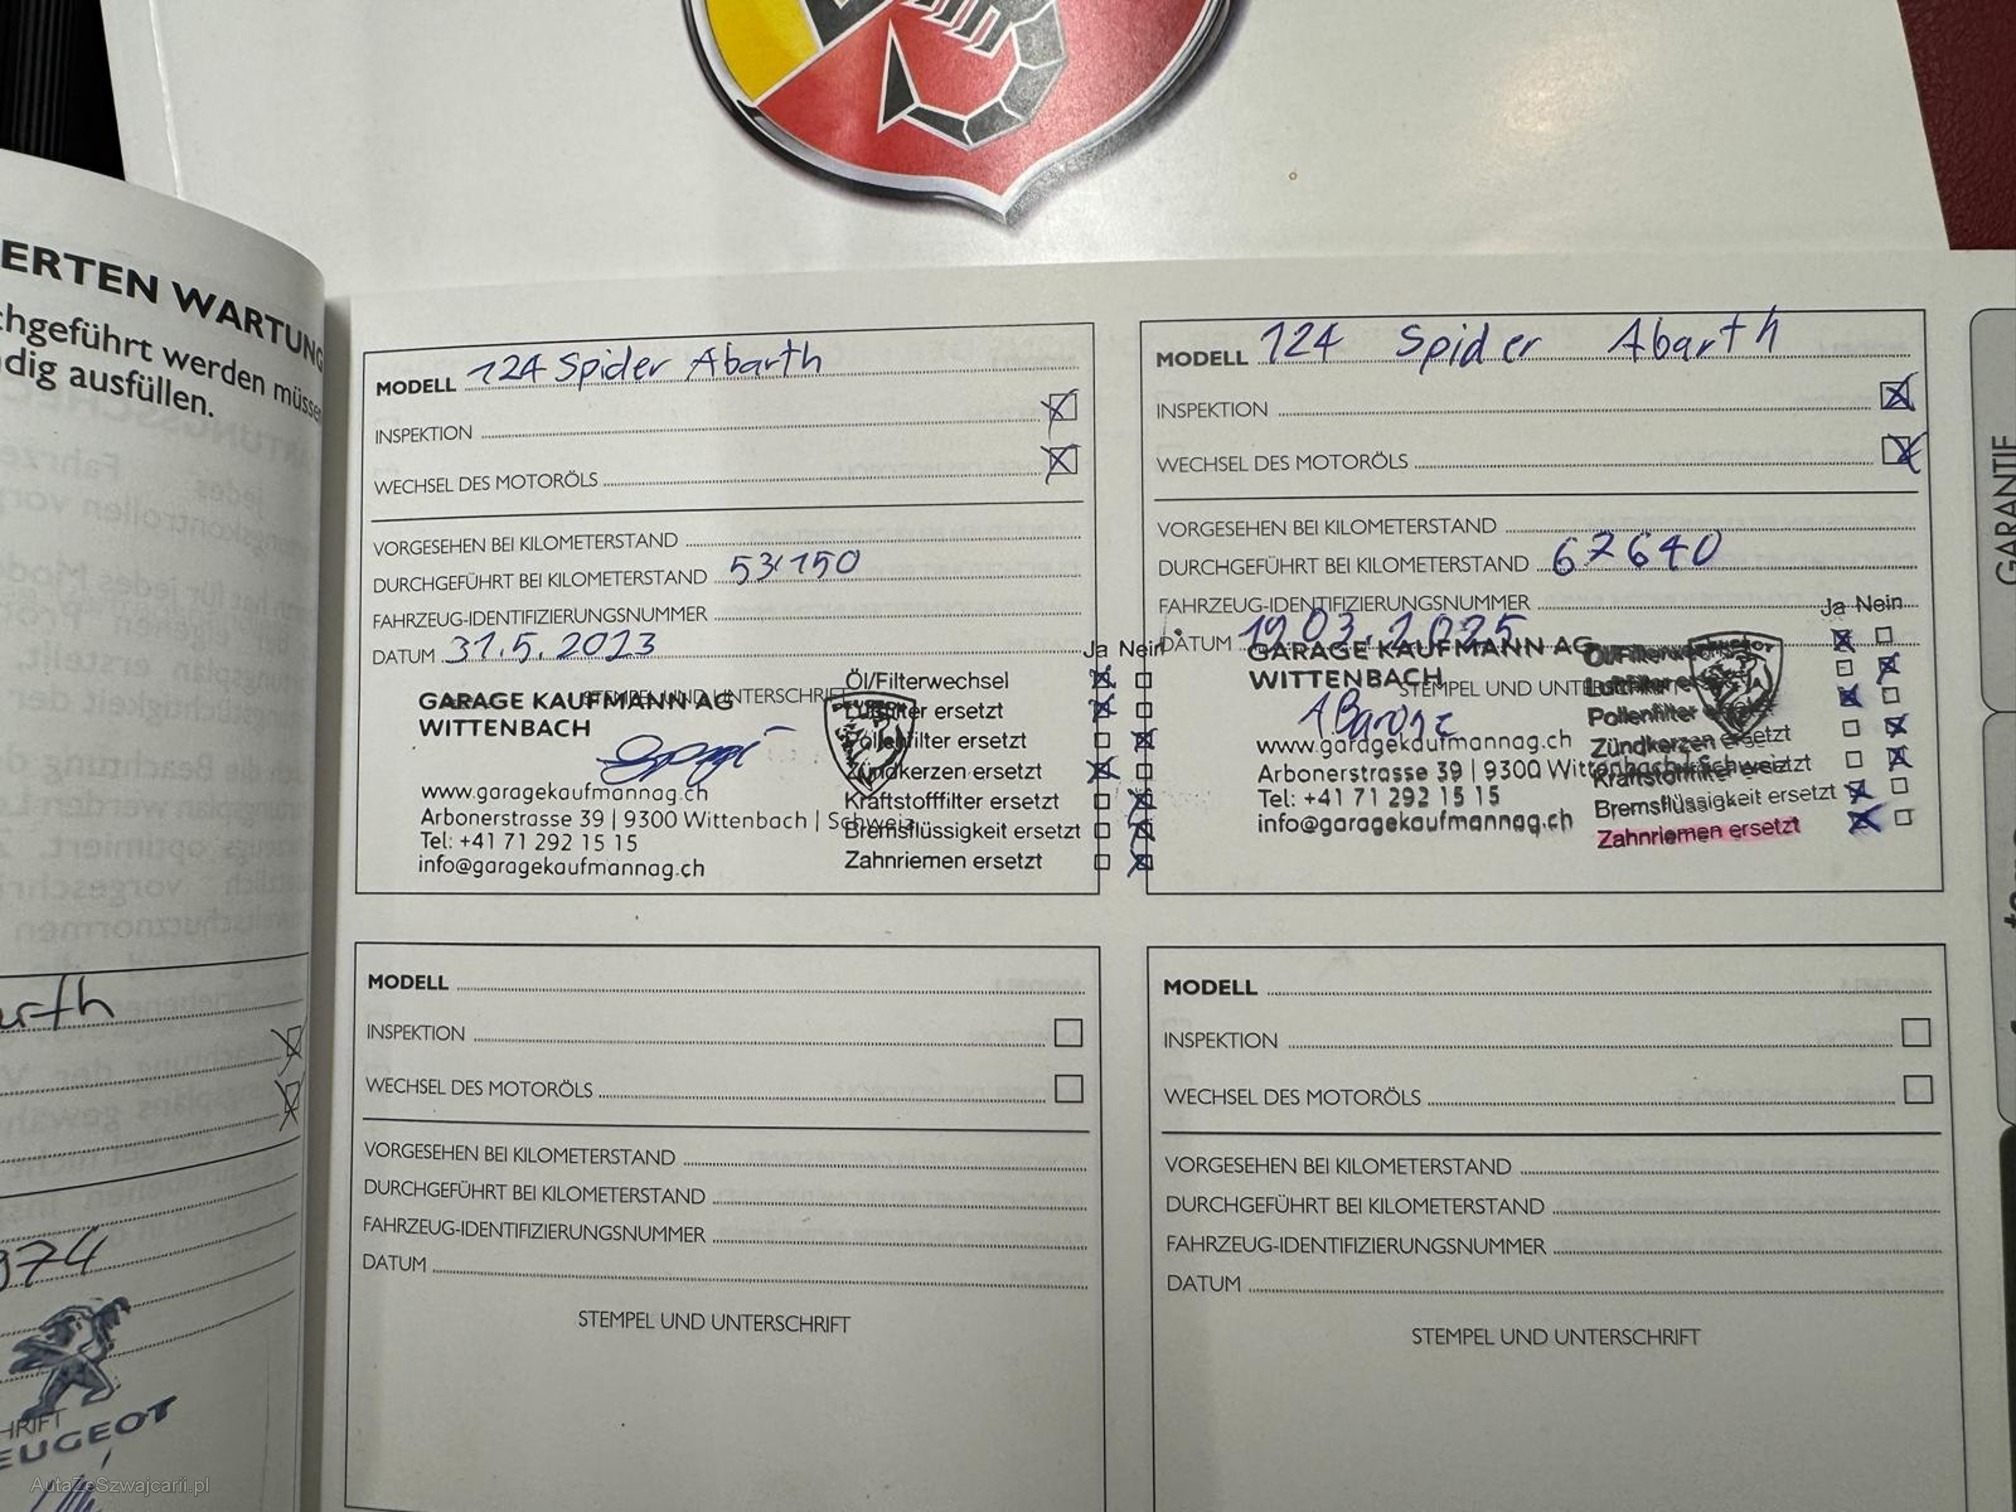 ERTEN WARTUNG
chgeführt werden müssen
dig ausfüllen.
arth
974
HRIFT
EUGEOT
MODELL 124 Spider Abarth
INSPEKTION
WECHSEL DES MOTORÖLS
VORGESEHEN BEI KILOMETERSTAND
DURCHGEFÜHRT BEI KILOMETERSTAND 53'150
FAHRZEUG-IDENTIFIZIERUNGSNUMMER
DATUM 31.5.2023
STEMPEL UND UNTERSCHRIFT
GARAGE KAUFMANN AG
WITTENBACH
www.garagekaufmannag.ch
Arbonerstrasse 39 | 9300 Wittenbach | Schweiz
Tel: +41 71 292 15 15
info@garagekaufmannag.ch
Ja Nein
Öl/Filterwechsel
Luftfilter ersetzt
Pollenfilter ersetzt
Zündkerzen ersetzt
Kraftstofffilter ersetzt
Bremsflüssigkeit ersetzt
Zahnriemen ersetzt
MODELL 124 Spider Abarth
INSPEKTION
WECHSEL DES MOTORÖLS
VORGESEHEN BEI KILOMETERSTAND
DURCHGEFÜHRT BEI KILOMETERSTAND 67640
FAHRZEUG-IDENTIFIZIERUNGSNUMMER
DATUM 19.03.2025
STEMPEL UND UNTERSCHRIFT
GARAGE KAUFMANN AG
WITTENBACH
www.garagekaufmannag.ch
Arbonerstrasse 39 | 9300 Wittenbach | Schweiz
Tel: +41 71 292 15 15
info@garagekaufmannag.ch
Ja Nein
Öl/Filterwechsel
Luftfilter ersetzt
Pollenfilter ersetzt
Zündkerzen ersetzt
Kraftstofffilter ersetzt
Bremsflüssigkeit ersetzt
Zahnriemen ersetzt
MODELL
INSPEKTION
WECHSEL DES MOTORÖLS
VORGESEHEN BEI KILOMETERSTAND
DURCHGEFÜHRT BEI KILOMETERSTAND
FAHRZEUG-IDENTIFIZIERUNGSNUMMER
DATUM
STEMPEL UND UNTERSCHRIFT
MODELL
INSPEKTION
WECHSEL DES MOTORÖLS
VORGESEHEN BEI KILOMETERSTAND
DURCHGEFÜHRT BEI KILOMETERSTAND
FAHRZEUG-IDENTIFIZIERUNGSNUMMER
DATUM
STEMPEL UND UNTERSCHRIFT
GARANTIE
AutaZeSzwajcarii.pl